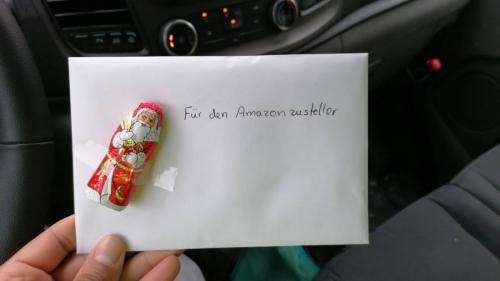 Für den Amazonzusteller